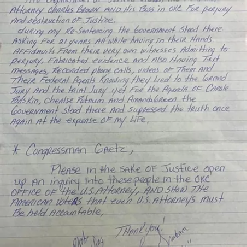 Attorney Charles Brown and His Boss in OKC For perjury
and obstruction of Justice.
during my Re-Sentencing the Government stood there
Asking For 21 years All while having in their Hands
Affidavits From their very own witnesses Admitting to
Perjury, Fabricated evidence and also Having Text
Massages, Recorded phone calls, video of Them and
Their Federal Agents Knowing they lied to the Grand
Jury And the Trial Jury yet For the Agents of
and Amanda Green the
Government stood There and supressed the truth once
Again At the expense of my life.
* Congressman Gaetz,
Please in the Sake of Justice open
up An inquiry into These people in the OKC
OFFice of the U.S. Attorney, And Show The
American voters that even U.S. Attorneys must
Be held Accountable,
Thank you!